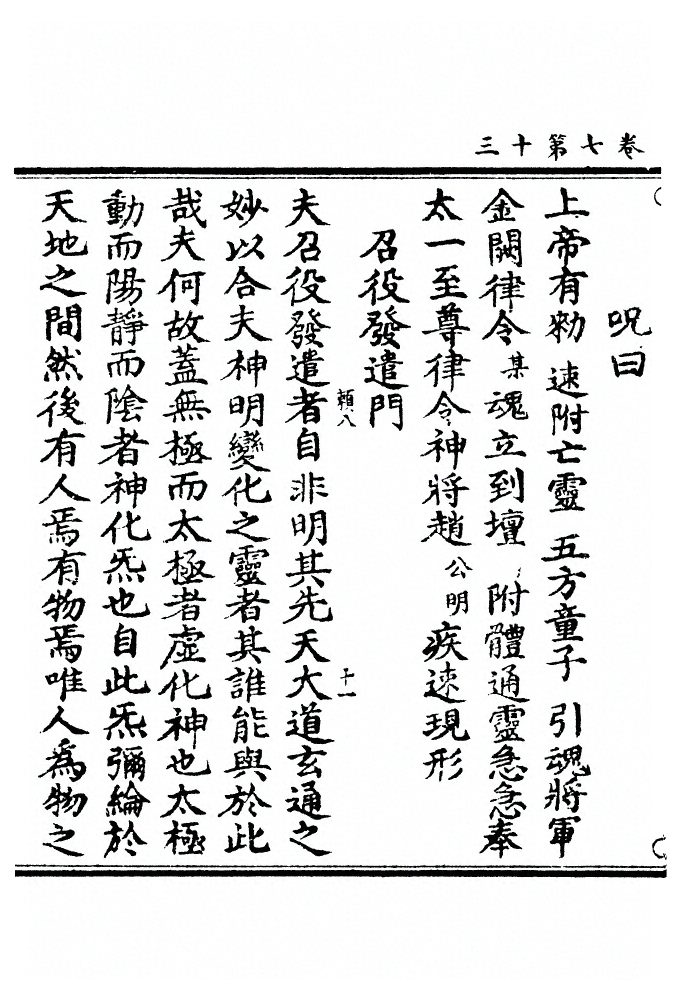 卷七第十三
呪曰
上帝有勑 速附亡靈 五方童子 引魂將軍
金闕律令某魂立到壇 附體通靈急急奉
太一至尊律令神將趙公明疾速現形
召役發遣門
頼八
十一
夫召役發遣者自非明其先天大道玄通之
妙以合夫神明變化之靈者其誰能與於此
哉夫何故蓋無極而太極者虛化神也太極
動而陽靜而陰者神化炁也自此炁彌綸於
天地之間然後有人焉有物焉唯人為物之